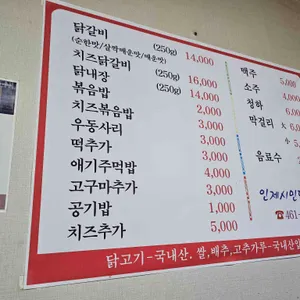 닭갈비 (250g) 14,000
(순한맛/살짝매운맛/매운맛)
치즈닭갈비 (250g) 16,000
닭내장 (250g) 14,000
볶음밥 2,000
치즈볶음밥 3,000
우동사리 3,000
떡추가 3,000
애기주먹밥 4,000
고구마추가 3,000
공기밥 1,000
치즈추가 5,000
맥주 5,
소주 4,
청하 6,
막걸리 大 6,
小 5,
음료수
인제시인
☎461-
닭고기-국내산. 쌀,배추,고추가루-국내산